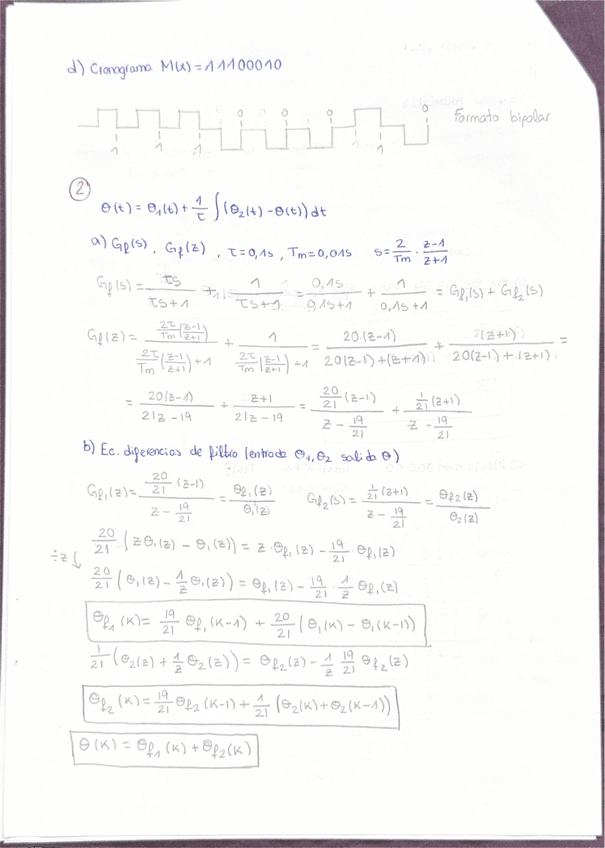 d) Cronograma M(x) = 11100010
0 0 0 0
Formato bipolar
1 1 1 1
2
θ(t) = θ₁(t) + 1/τ ∫(θ₂(t) - θ(t)) dt
a) Gf(s), Gf(z), τ = 0,1s, Tm = 0,01s s = 2/Tm · z-1/z+1
Gf(s) = τs/τs+1 + 1/τs+1 = 0,1s/0,1s+1 + 1/0,1s+1 = Gf₁(s) + Gf₂(s)
Gf(z) = 2τ/Tm (z-1/z+1) / 2τ/Tm (z-1/z+1) + 1 + 1 / 2τ/Tm (z-1/z+1) + 1 = 20(z-1) / 20(z-1) + (z+1) + (z+1) / 20(z-1) + (z+1) =
= 20(z-1) / 21z - 19 + z+1 / 21z - 19 = 20/21 (z-1) / z - 19/21 + 1/21 (z+1) / z - 19/21
b) Ec. diferencias de filtro (entrada θ₁, θ₂ salida θ)
Gf₁(z) = 20/21 (z-1) / z - 19/21 = θf₁(z) / θ₁(z) Gf₂(s) = 1/21 (z+1) / z - 19/21 = θf₂(z) / θ₂(z)
20/21 (zθ₁(z) - θ₁(z)) = z · θf₁(z) - 19/21 · θf₁(z)
÷z ↓ 20/21 (θ₁(z) - 1/z θ₁(z)) = θf₁(z) - 19/21 · 1/z θf₁(z)
θf₁(K) = 19/21 θf₁(K-1) + 20/21 (θ₁(K) - θ₁(K-1))
1/21 (θ₂(z) + 1/z θ₂(z)) = θf₂(z) - 1/z 19/21 θf₂(z)
θf₂(K) = 19/21 θf₂(K-1) + 1/21 (θ₂(K) + θ₂(K-1))
θ(K) = θf₁(K) + θf₂(K)